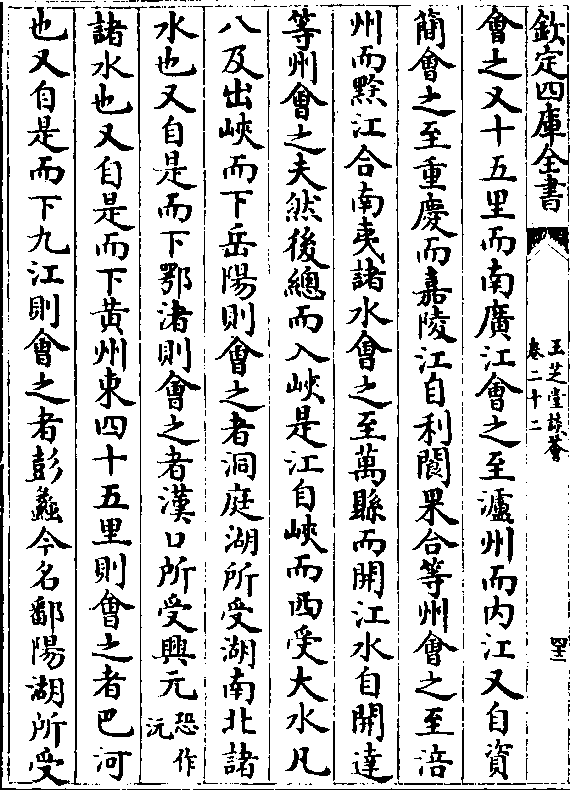 欽定四庫全書
玉芝堂談薈
卷二十二
會之又十五里而南廣江會之至瀘州而内江又自資
簡會之至重慶而嘉陵江自利閬果合等州會之至涪
州而黔江合南夷諸水會之至萬縣而開江水自開達
等州會之夫然後總而入峽是江自峽而西受大水凡
八及出峽而下岳陽則會之者洞庭湖所受湖南北諸
水也又自是而下鄂渚則會之者漢口所受興元恐作沅
諸水也又自是而下黄州東四十五里則會之者巴河
也又自是而下九江則會之者彭蠡今名鄱陽湖所受